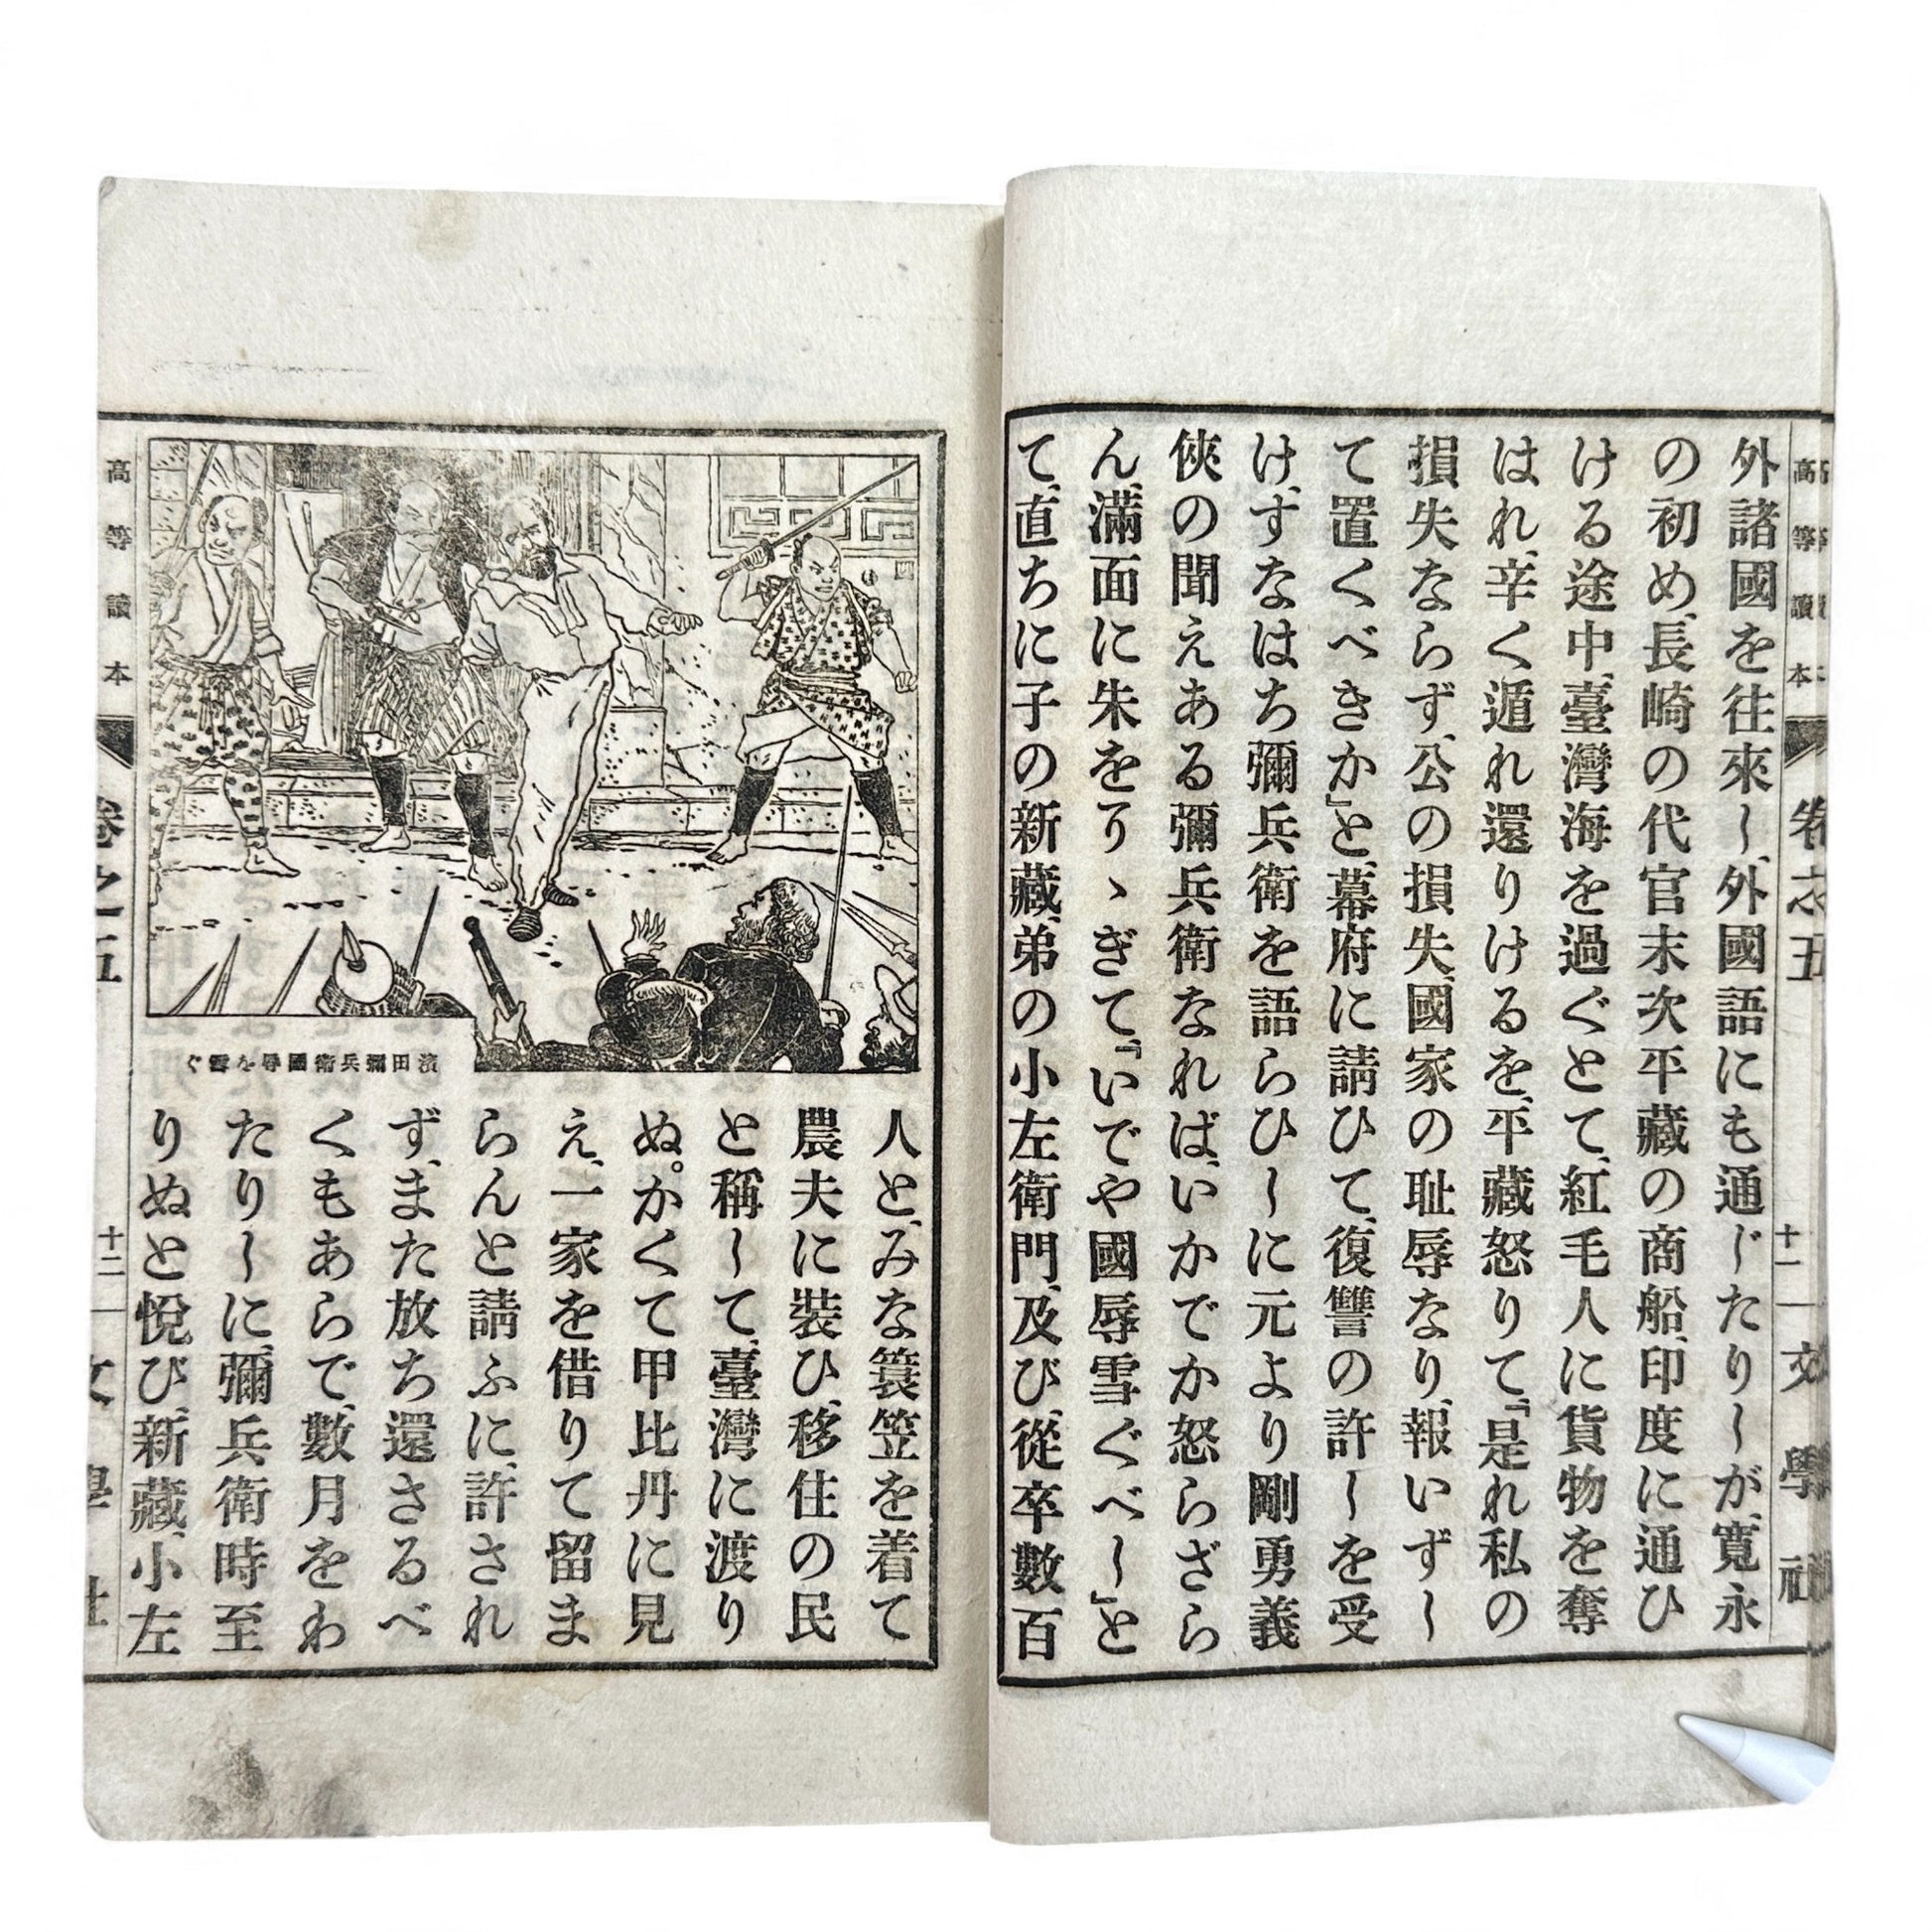 外諸國を往來し、外國語にも通じたりしが、寛永
の初め、長崎の代官末次平藏の商船、印度に通ひ
ける途中、臺灣海を過ぐとて、紅毛人に貨物を奪
はれ、辛く遁れ還りけるを、平藏怒りて、『是れ私の
損失ならず、公の損失、國家の耻辱なり、報いずし
て置くべきか』と、幕府に請ひて、復讐の許しを受
け、すなはち彌兵衛を語らひしに元より剛勇義
俠の聞えある彌兵衛なれば、いかでか怒らざら
ん、滿面に朱をそゝぎて、『いでや國辱雪ぐべし』と
て、直ちに子の新藏、弟の小左衛門、及び、從卒數百
高等讀本 卷之五 十一 文學社
濱田彌兵衛國辱を雪ぐ
人と、みな簑笠を着て
農夫に裝ひ、移住の民
と稱して、臺灣に渡り
ぬ。かくて甲比丹に見
え、一家を借りて留ま
らんと請ふに、許され
ず、また放ち還さるべ
くもあらで、數月をわ
たりしに、彌兵衛時至
りぬと悅び、新藏、小左
高等讀本 卷之五 十二 文學社